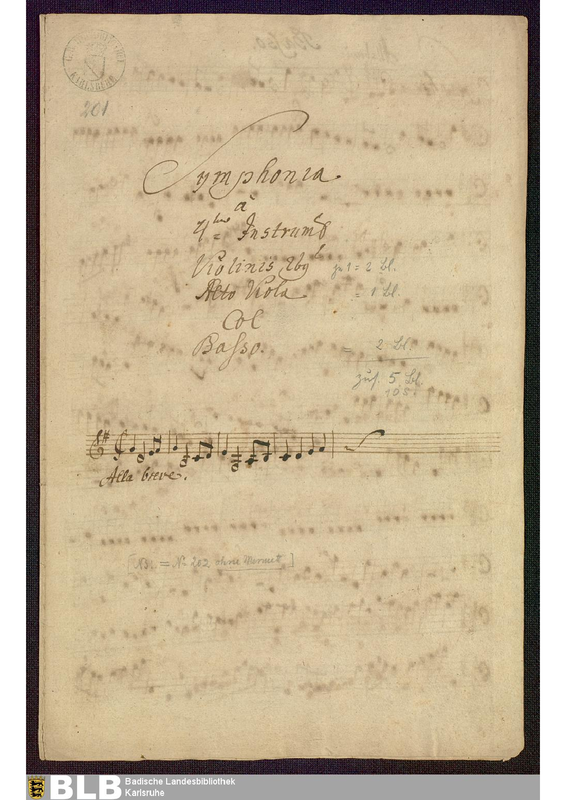 KARLSRUHE
201
Symphonia.
à
4tro Instrumt
Violinis 2bus zu 1 = 2 Bl.
Alto Viola = 1 Bl.
Col
Basso. = 2 Bl.
zus. 5 Bl.
Alla breve.
[NB. = No 202 ohne Menuett]
BLB Badische Landesbibliothek
Karlsruhe